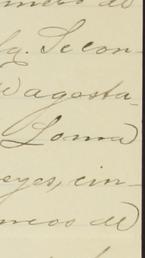 mero de
fg. Se con-
agosta-
Loma
eyes, cin-
meos de